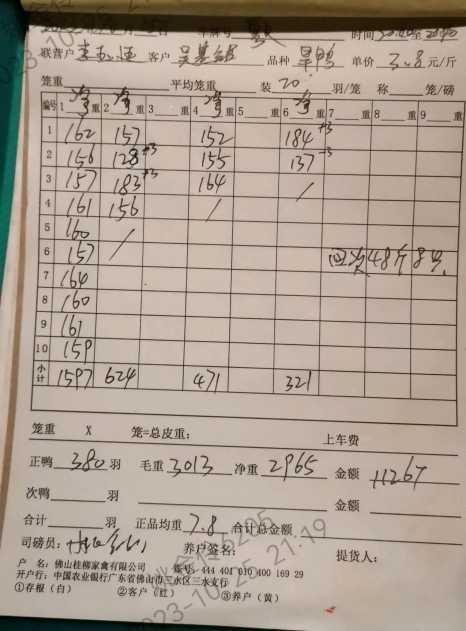 时间 20:00至21:20
联营户 客户 吴 品种 旱鸭 单价 3.8 元/斤
笼重 平均笼重 装 20 羽/笼 称 笼/磅
编号 1 净 重 2 净 重 3 重 4 净 重 5 重 6 净 重 7 重 8 重 9 重
1 162 157 152 184 +3
2 156 128 +3 155 137 -3
3 157 183 +3 164 /
4 161 156 /
5 160
6 157 / 回 48斤 8只
7 164
8 160
9 161
10 159
小计 1597 624 471 321
笼重 X 笼=总皮重: 上车费
正鸭 380 羽 毛重 3013 净重 2965 金额 11267
次鸭 羽 金额
合计 羽 正品均重 7.8 合计总金额
司磅员: 养户签名: 提货人:
户 名: 佛山桂柳家禽有限公司 账号: 444 401 010 400 169 29
开户行: 中国农业银行广东省佛山市三水区三水支行
①存根(白) ②客户(红) ③养户(黄)